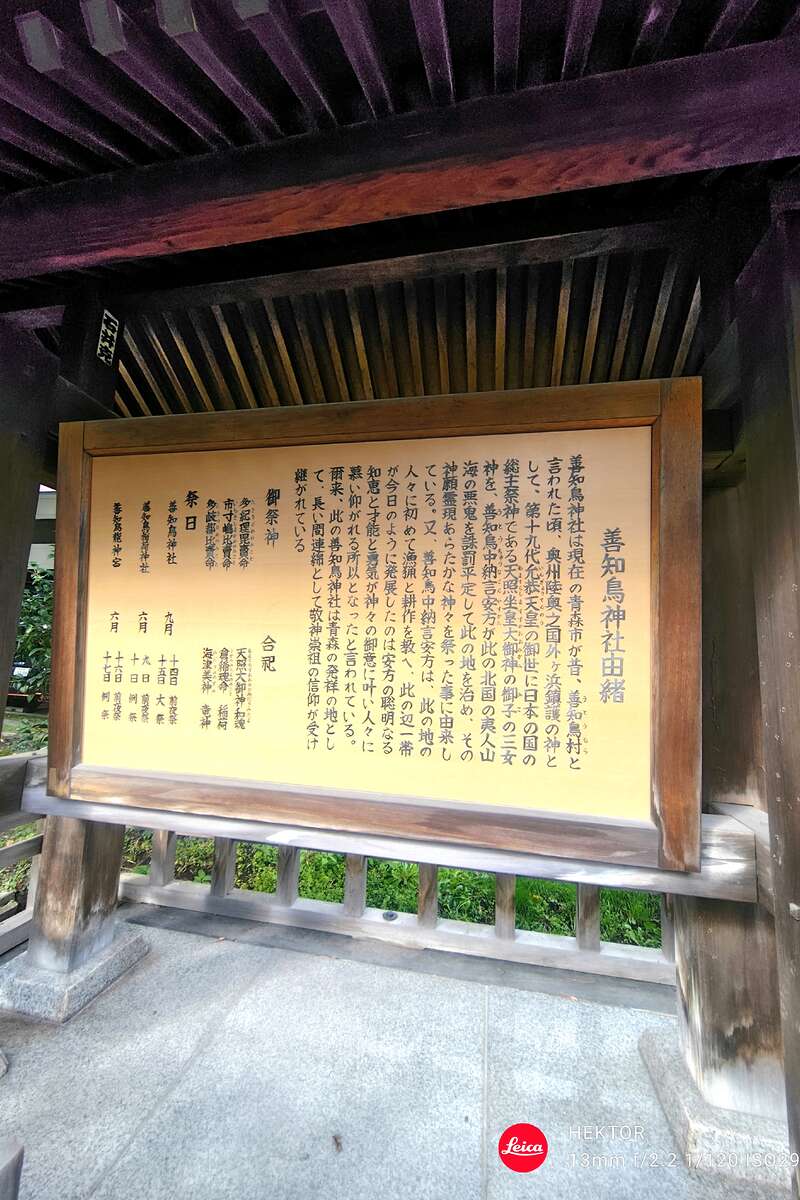 善知鳥神社由緒
善知鳥神社は現在の青森市が昔、善知鳥村と
言われた頃、奥州陸奥之国外ヶ浜鎮護の神と
して、第十九代允恭天皇の御世に日本の国の
総主祭神である天照坐皇大御神の御子の三女
神を、善知鳥中納言安方が此の北国の夷人山
海の悪鬼を誅罰平定して此の地を治め、その
神願霊現あらたかな神々を祭った事に由来し
ている。又、善知鳥中納言安方は、此の地の
人々に初めて漁猟と耕作を教へ、此の辺一帯
が今日のように発展したのは安方の聡明なる
知恵と才能と勇気が神々の御意に叶い人々に
慕い仰がれる所以となったと言われている。
爾来、此の善知鳥神社は青森の発祥の地とし
て、長い間連綿として敬神崇祖の信仰が受け
継がれている
御祭神
多紀理毘賣命
市寸嶋比賣命
多岐都比賣命
合祀
天照大御神和魂
倉稲魂命 稲荷
海津美神 竜神
祭日
善知鳥神社 九月 十四日 前夜祭
十五日 大祭
善知鳥稲荷神社 六月 九日 前夜祭
十日 例祭
善知鳥龍神宮 六月 十六日 前夜祭
十七日 例祭
Leica
HEKTOR
13mm f/2.2 1/120 ISO29